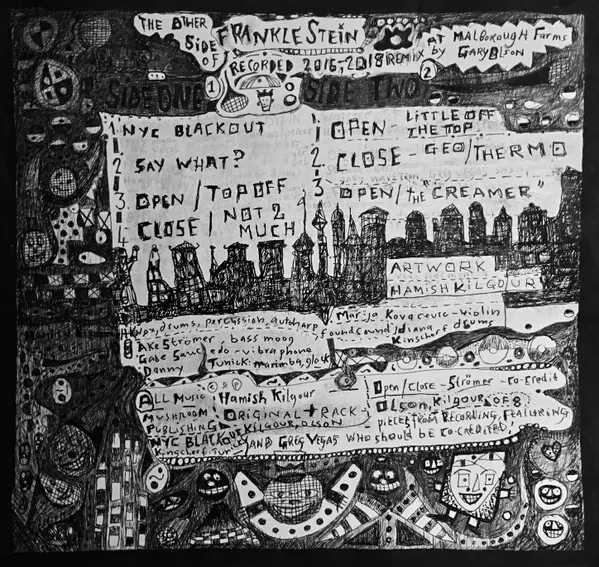 THE OTHER SIDE OF
FRANKLESTEIN
RECORDED 2016, 2018 REMIX
AT MALBOROUGH FARMS
by GARY OLSON
SIDE ONE 1
1 NYC BLACKOUT
2 SAY WHAT?
3. OPEN / TOP OFF
4 CLOSE / NOT 2 MUCH
SIDE TWO 2
1 OPEN LITTLE OFF THE TOP
2. CLOSE - GEO/THERMO
3 OPEN/the "CREAMER"
ARTWORK
HAMISH KILGOUR
HK vox, drums, percussion, autoharp
found sound
Marija Kovacevic - violin
diana Kinscherf drums
Jake Strömer, bass moog
Gabe Saucedo - vibraphone
Danny Tunick: marimba, glock
All Music Hamish Kilgour
MUSHROOM PUBLISHING
ORIGINAL TRACK -
KILGOUR, OLSON
NYC BLACKOUT
Kinscherf, Tun
AND GREG VEGAS WHO SHOULD BE CO-CREDITED!
Open/Close - Strömer - co-credit
Olson, Kilgour. OF 8
pieces FROM RECORDING, FEATURING